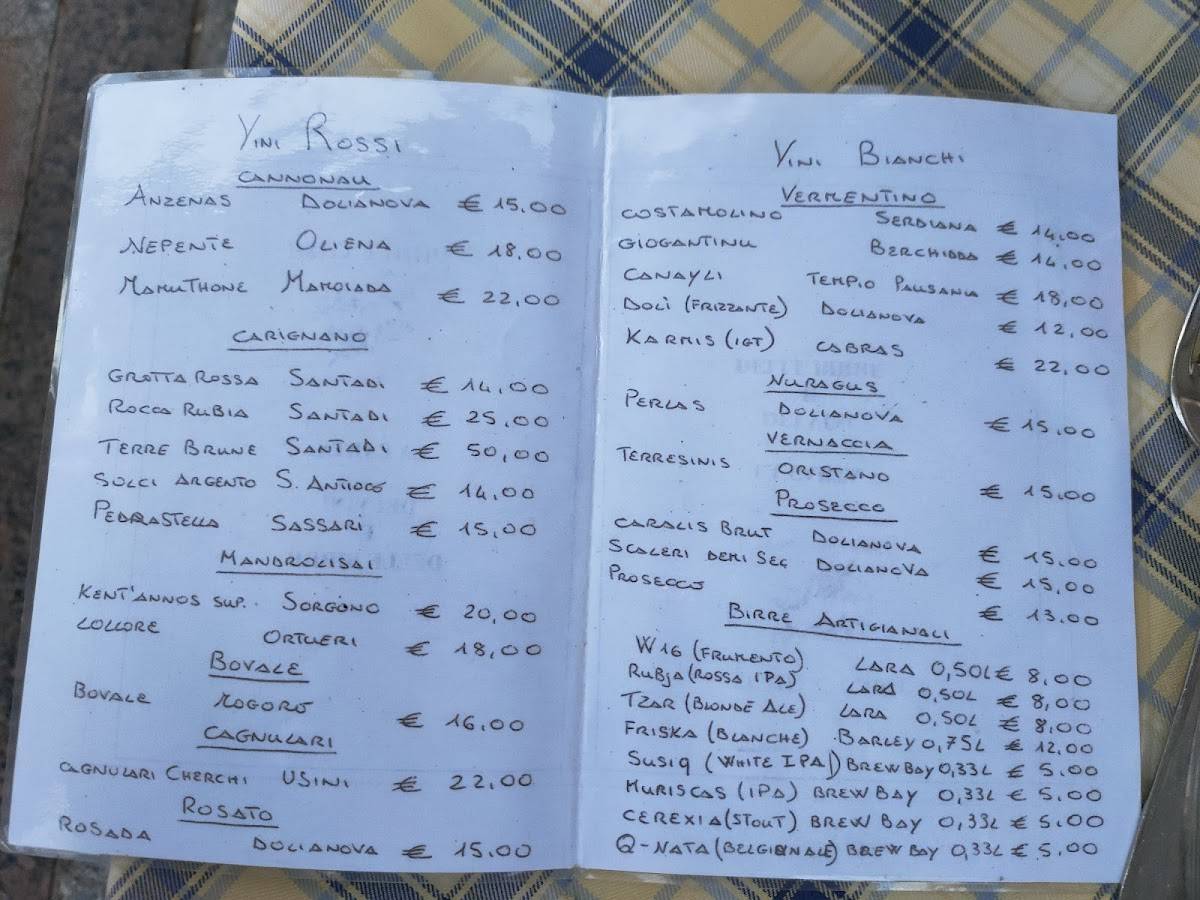 VINI ROSSI
CANNONAU
ANZENAS DOLIANOVA € 15,00
NEPENTE OLIENA € 18,00
MAMUTHONE MAMOIADA € 22,00
CARIGNANO
GROTTA ROSSA SANTADI € 14,00
ROCCA RUBIA SANTADI € 25,00
TERRE BRUNE SANTADI € 50,00
SULCI ARGENTO S. ANTIOCO € 14,00
PEDRASTELLA SASSARI € 15,00
MANDROLISAI
KENT'ANNOS SUP. SORGONO € 20,00
LOLLORE ORTUERI € 18,00
BOVALE
BOVALE MOGORO € 16,00
CAGNULARI
CAGNULARI CHERCHI USINI € 22,00
ROSATO
ROSADA DOLIANOVA € 15,00
VINI BIANCHI
VERMENTINO
COSTAMOLINO SERDIANA € 14,00
GIOGANTINU BERCHIDDA € 14,00
CANAYLI TEMPIO PAUSANIA € 18,00
DOLÌ (FRIZZANTE) DOLIANOVA € 12,00
KARMIS (IGT) CABRAS € 22,00
NURAGUS
PERLAS DOLIANOVA € 15,00
VERNACCIA
TERRESINIS ORISTANO € 15,00
PROSECCO
CARALIS BRUT DOLIANOVA € 15,00
SCALERI DEMI SEC DOLIANOVA € 15,00
PROSECCO € 13,00
BIRRE ARTIGIANALI
W16 (FRUMENTO) LARA 0,50L € 8,00
RUBJA (ROSSA IPA) LARA 0,50L € 8,00
TZAR (BLONDE ALE) LARA 0,50L € 8,00
FRISKA (BLANCHE) BARLEY 0,75L € 12,00
SUSIQ (WHITE IPA) BREW BAY 0,33L € 5,00
MURISCAS (IPA) BREW BAY 0,33L € 5,00
CEREXIA (STOUT) BREW BAY 0,33L € 5,00
Q-NATA (BELGIONALE) BREW BAY 0,33L € 5,00